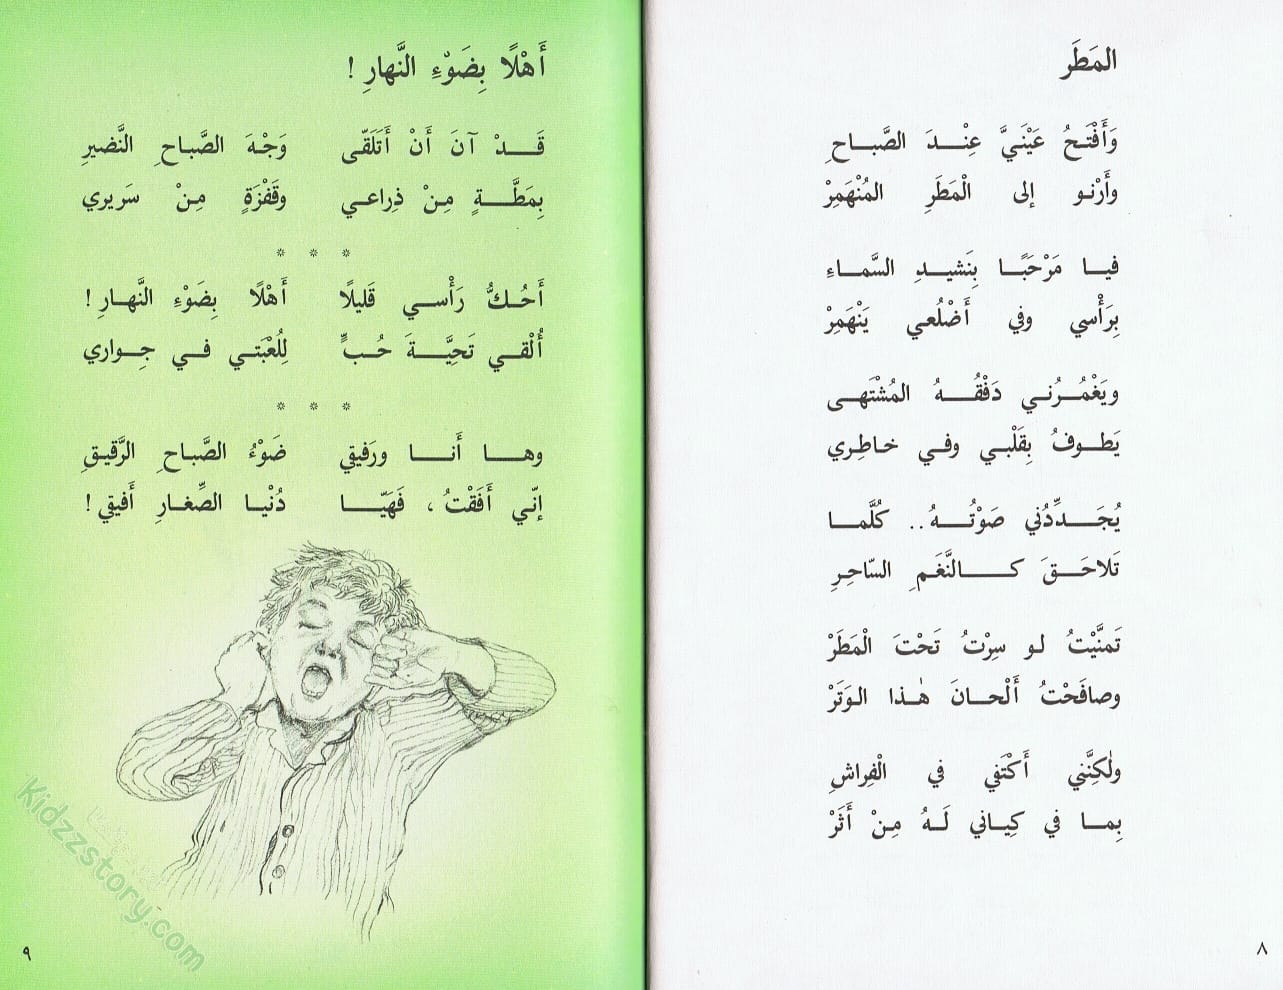 المَطَر
وَأَفْتَحُ عَيْنَيَّ عِنْدَ الصَّباحِ
وأَرْنو إلى الْمَطَرِ المُنْهَمِرْ
فيا مَرْحَبًا بِنَشيدِ السَّماءِ
بِرَأْسي وفي أَضْلُعي يَنْهَمِرْ
ويَغْمُرُني دَفْقُهُ المُشْتَهى
يَطوفُ بِقَلْبي وفي خاطِري
يُجَدِّدُني صَوْتُهُ.. كُلَّما
تَلاحَقَ كالنَّغَمِ السّاحِرِ
تَمنَّيْتُ لو سِرْتُ تَحْتَ الْمَطَرْ
وصافَحْتُ أَلْحانَ هٰذا الوَتَرْ
ولٰكِنَّني أَكْتَفي في الْفِراشِ
بِما في كِياني لَهُ مِنْ أَثَرْ
٨
أَهْلًا بِضَوْءِ النَّهارِ !
قَدْ آنَ أَنْ أَتَلَقّى وَجْهَ الصَّباحِ النَّضيرِ
بِمَطَّةٍ مِنْ ذِراعي وقَفْزَةٍ مِنْ سَريري
* * *
أَحُكُّ رَأْسي قَليلًا أَهْلًا بِضَوْءِ النَّهارِ !
أُلْقي تَحِيَّةَ حُبٍّ لِلُعْبَتي في جِواري
* * *
وها أَنا ورَفيقي ضَوْءُ الصَّباحِ الرَّقيقِ
إنّي أَفَقْتُ ، فَهَيّا دُنْيا الصِّغارِ أَفيقي !
Kidzzstory.com
٩